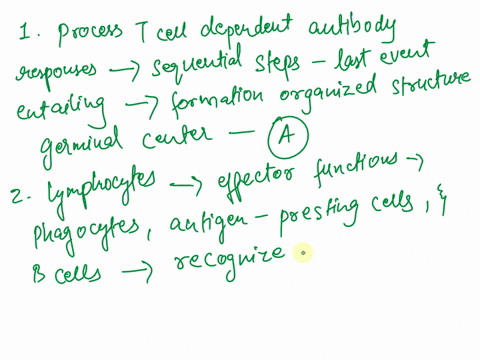 1. Process T cell dependent antibody
responses → sequential steps - last event
entailing → formation organized structure
germinal center — A
2. Lymphocytes → effector functions →
phagocytes, antigen-presting cells, &
B cells → recognize